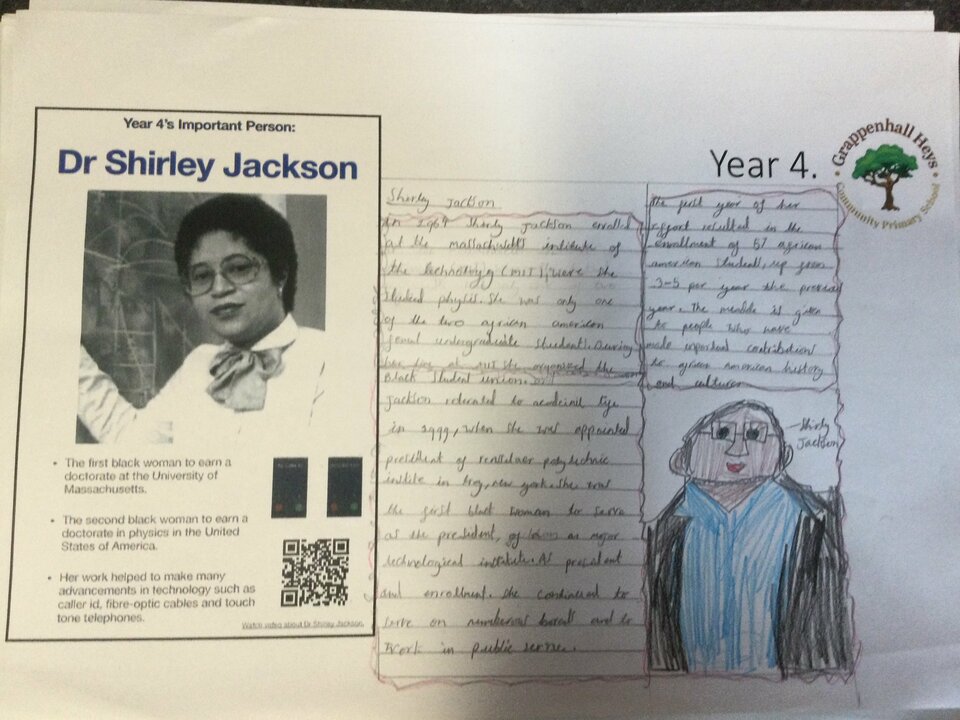 Year 4's Important Person:
Dr Shirley Jackson
The first black woman to earn a
doctorate at the University of
Massachusetts.
The second black woman to earn a
doctorate in physics in the United
States of America.
Her work helped to make many
advancements in technology such as
caller id, fibre-optic cables and touch
tone telephones.
Watch video about Dr Shirley Jackson.
Shirley Jackson
In 1964 Shirly Jackson enrolled
at the massachusetts institute of
the (MIT), were she
studied physics. She was only one
of the two african american
undergraduate students. During
her at MIT she organized the
Black student union.
Jackson to
in 1999, when she was appointed
president of polytechnic
in troy, new york. She was
the first black woman to serve
as the president, of major
technological institute. As president
and enrollment. she continued to
serve on board and to
work in public
Year 4.
Grappenhall Heys
Community Primary School
the first year of her
effort resulted in the
enrollment of 57 african
american students, up from
3-5 per year the
year. The is given
to people who have
made contribution
to african american history
and
Shirly
Jackson